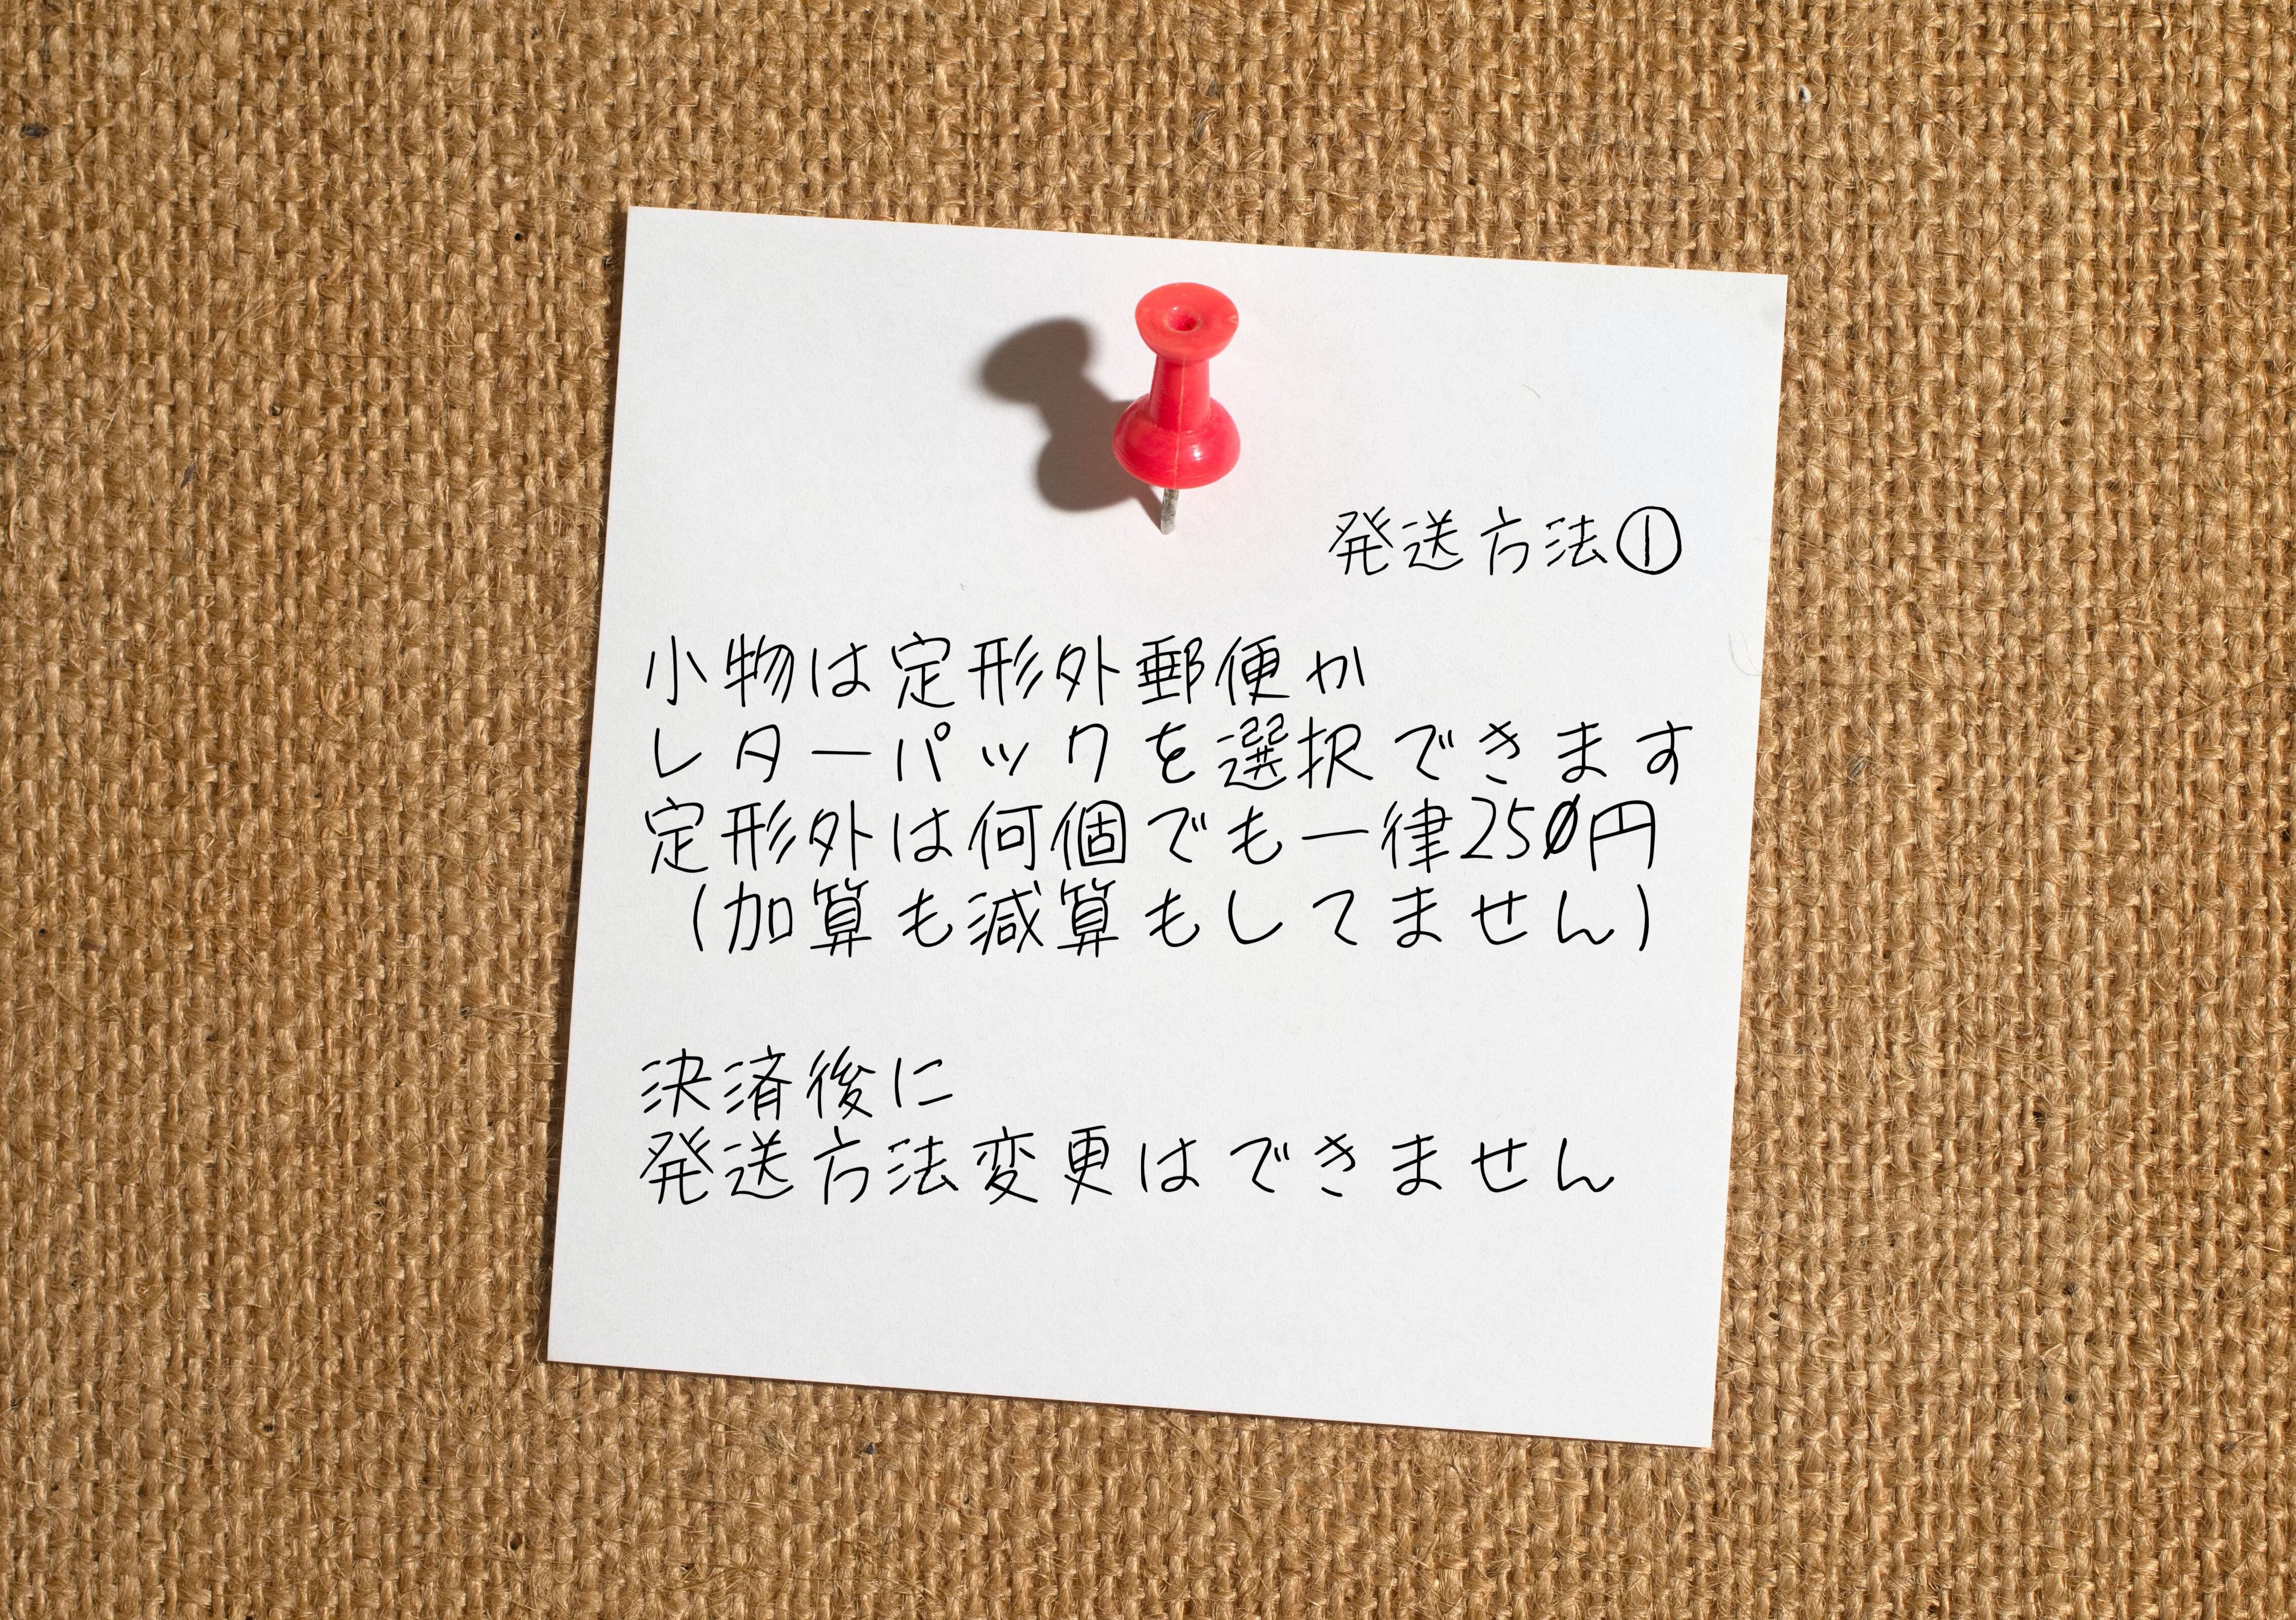 発送方法①
小物は定形外郵便か
レターパックを選択できます
定形外は何個でも一律250円
（加算も減算もしてません）
決済後に
発送方法変更はできません